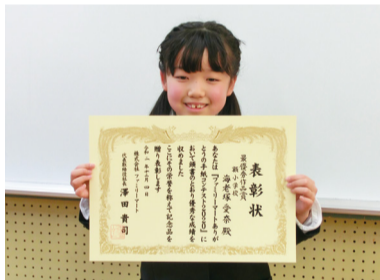 表彰状
最優秀作品賞
海老塚 愛奈 殿
あなたは「ファミリーマートありが
とうの手紙コンテスト2020」に
おいて頭書のとおり優秀な成績を
収めました
ここにその栄誉を称えて記念品を
贈り表彰します
株式会社 ファミリーマート
代表取締役社長 澤田 貴司